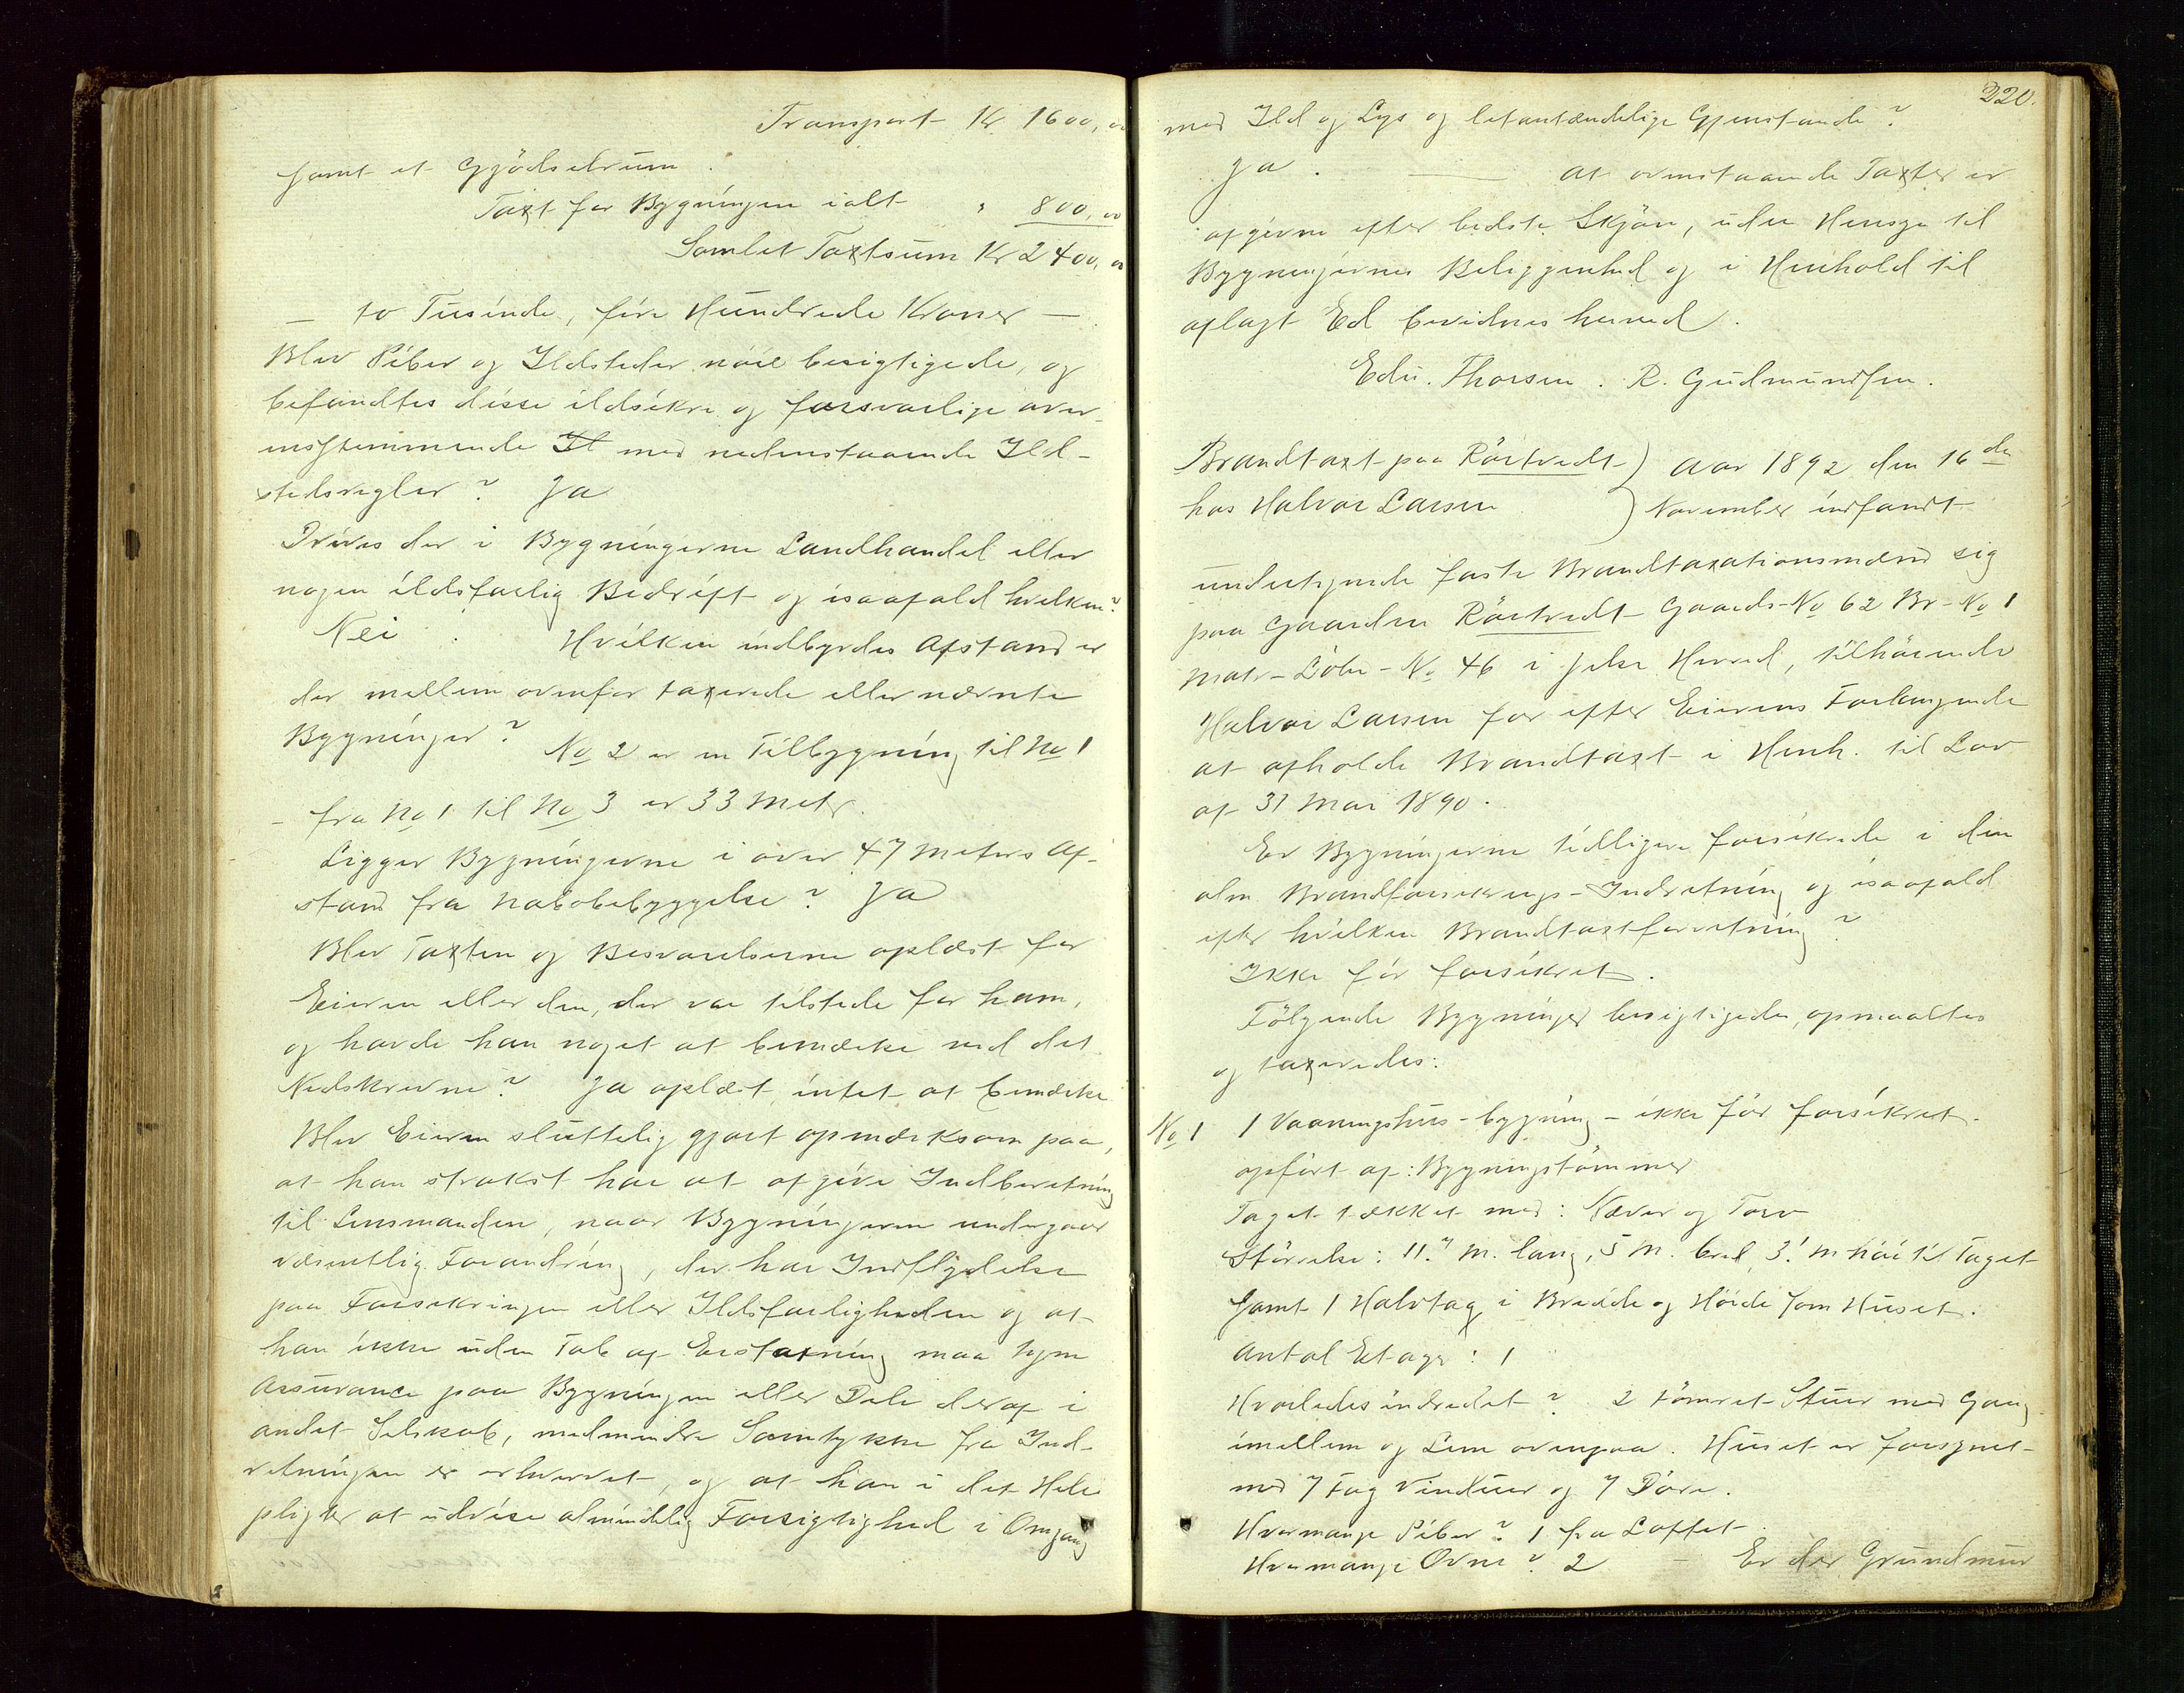 Transport Kr. 1600,00
samt et Gjödselrum.
Taxt for Bygningen ialt " 800,00
Samlet Taxtsum Kr 2400,00
— to Tusinde, fire Hundrede Kroner —
Blev Piber og Ildsteder nöie besigtigede, og
befandtes disse ildsikre og forsvarlige over-
ensstemmende Il med nedenstaaende Ild-
stedsregler? Ja
Drives der i Bygningerne Landhandel eller
nogen ildsfarlig Bedrift og isaafald hvilken?
Nei. Hvilken indbyrdes Afstand er
der mellem ovenfor taxerede eller nævnte
Bygninger? No 2 er en Tilbygning til No 1
- fra No 1 til No 3 er 33 Metr.
Ligger Bygningerne i over 47 Meters Af-
stand fra Nabobebyggelse? Ja
Blev Taxten og Besvarelserne oplæst for
Eieren eller den, der var tilstede for ham,
og havde han noget at bemærke ved det
Nedskrevne? Ja oplæst, intet at bemærke
Blev Eieren sluttelig gjort opmærksom paa,
at han strakst har at afgive Indberetning
til Lensmanden, naar Bygningerne undergaar
væsentlig Forandring, der har Indflydelse
paa Forsikringen eller Ildsfarligheden og at
han ikke uden Tab af Erstatning maa tegne
Assurance paa Bygningen eller Dele deraf i
andet Selskab, medmindre Samtykke fra Ind-
retningen er erhvervet, og at han i det Hele
pligter at udvise almindelig Forsigtighed i Omgang
220.
med Ild og Lys og letantændelige Gjenstande?
Ja. — At ovenstaaende Taxter er
afgivne efter bedste Skjön, uden Hensyn til
Bygningernes Beliggenhed og i Henhold til
aflagt Ed bevidnes herved.
Edv. Thorsen. R. Gudmundsen.
Brandtaxt paa Rörtvedt ) Aar 1892 den 16de
hos Halvor Larsen ) November indfandt
undertegnede faste Brandtaxationsmænd sig
paa Gaarden Rörtvedt Gaards-No 62 Br-No 1
Matr-Löbe-No 46 i Jelse Herred, tilhörende
Halvor Larsen for efter Eierens Forlangende
at afholde Brandtaxt i Henh. til Lov
af 31 Mai 1890.
Er Bygningerne tidligere forsikrede i den
alm. Brandforsikrings-Indretning og isaafald
efter hvilken Brandtaxtforretning?
Ikke för forsikret.
Fölgende Bygninger besigtigedes, opmaaltes
og taxeredes:
No 1 1 Vaaningshus-bygning - ikke för forsikret.
opfört af: Bygningstömmer
Taget tækket med: Næver og Torv
Störrelse: 11.7 M. lang, 5 M. bred, 3.1 M höi til Taget
samt 1 Halvtag i Bredde og Höide som Huset.
Antal Etager: 1
Hvorledes indredet? 2 tömret Stuer med Gang
imellem og Lem ovenpaa. Huset er forsynet
med 7 Fag Vinduer og 7 Döre.
Hvormange Piber? 1 fra Loftet
Hvormange Ovne? 2 - Er der Grundmur